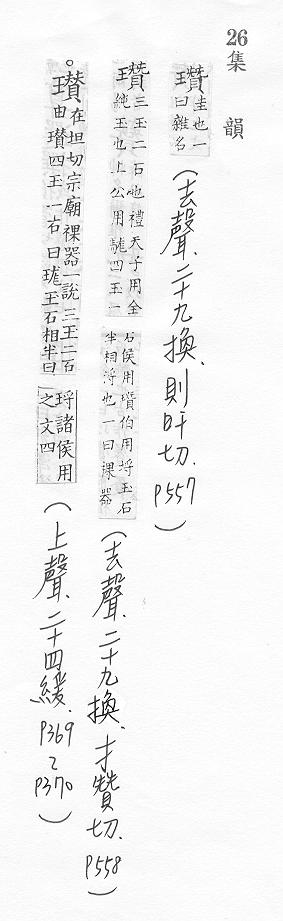 26集韻
瓚圭也一曰雜名(去聲、二十九換、則旰切.P557)
瓚三玉二石也禮天子用全純玉也上公用駹四玉一石侯用瓚伯用埒玉石半相埒也一曰祼器(去聲、二十九換、才贊切、P558)
○瓚在坦切宗廟祼器一說三玉二石由瓚四玉一石曰瑳玉石相半曰埒諸侯用之文四(上聲、二十四緩、P369~P370)